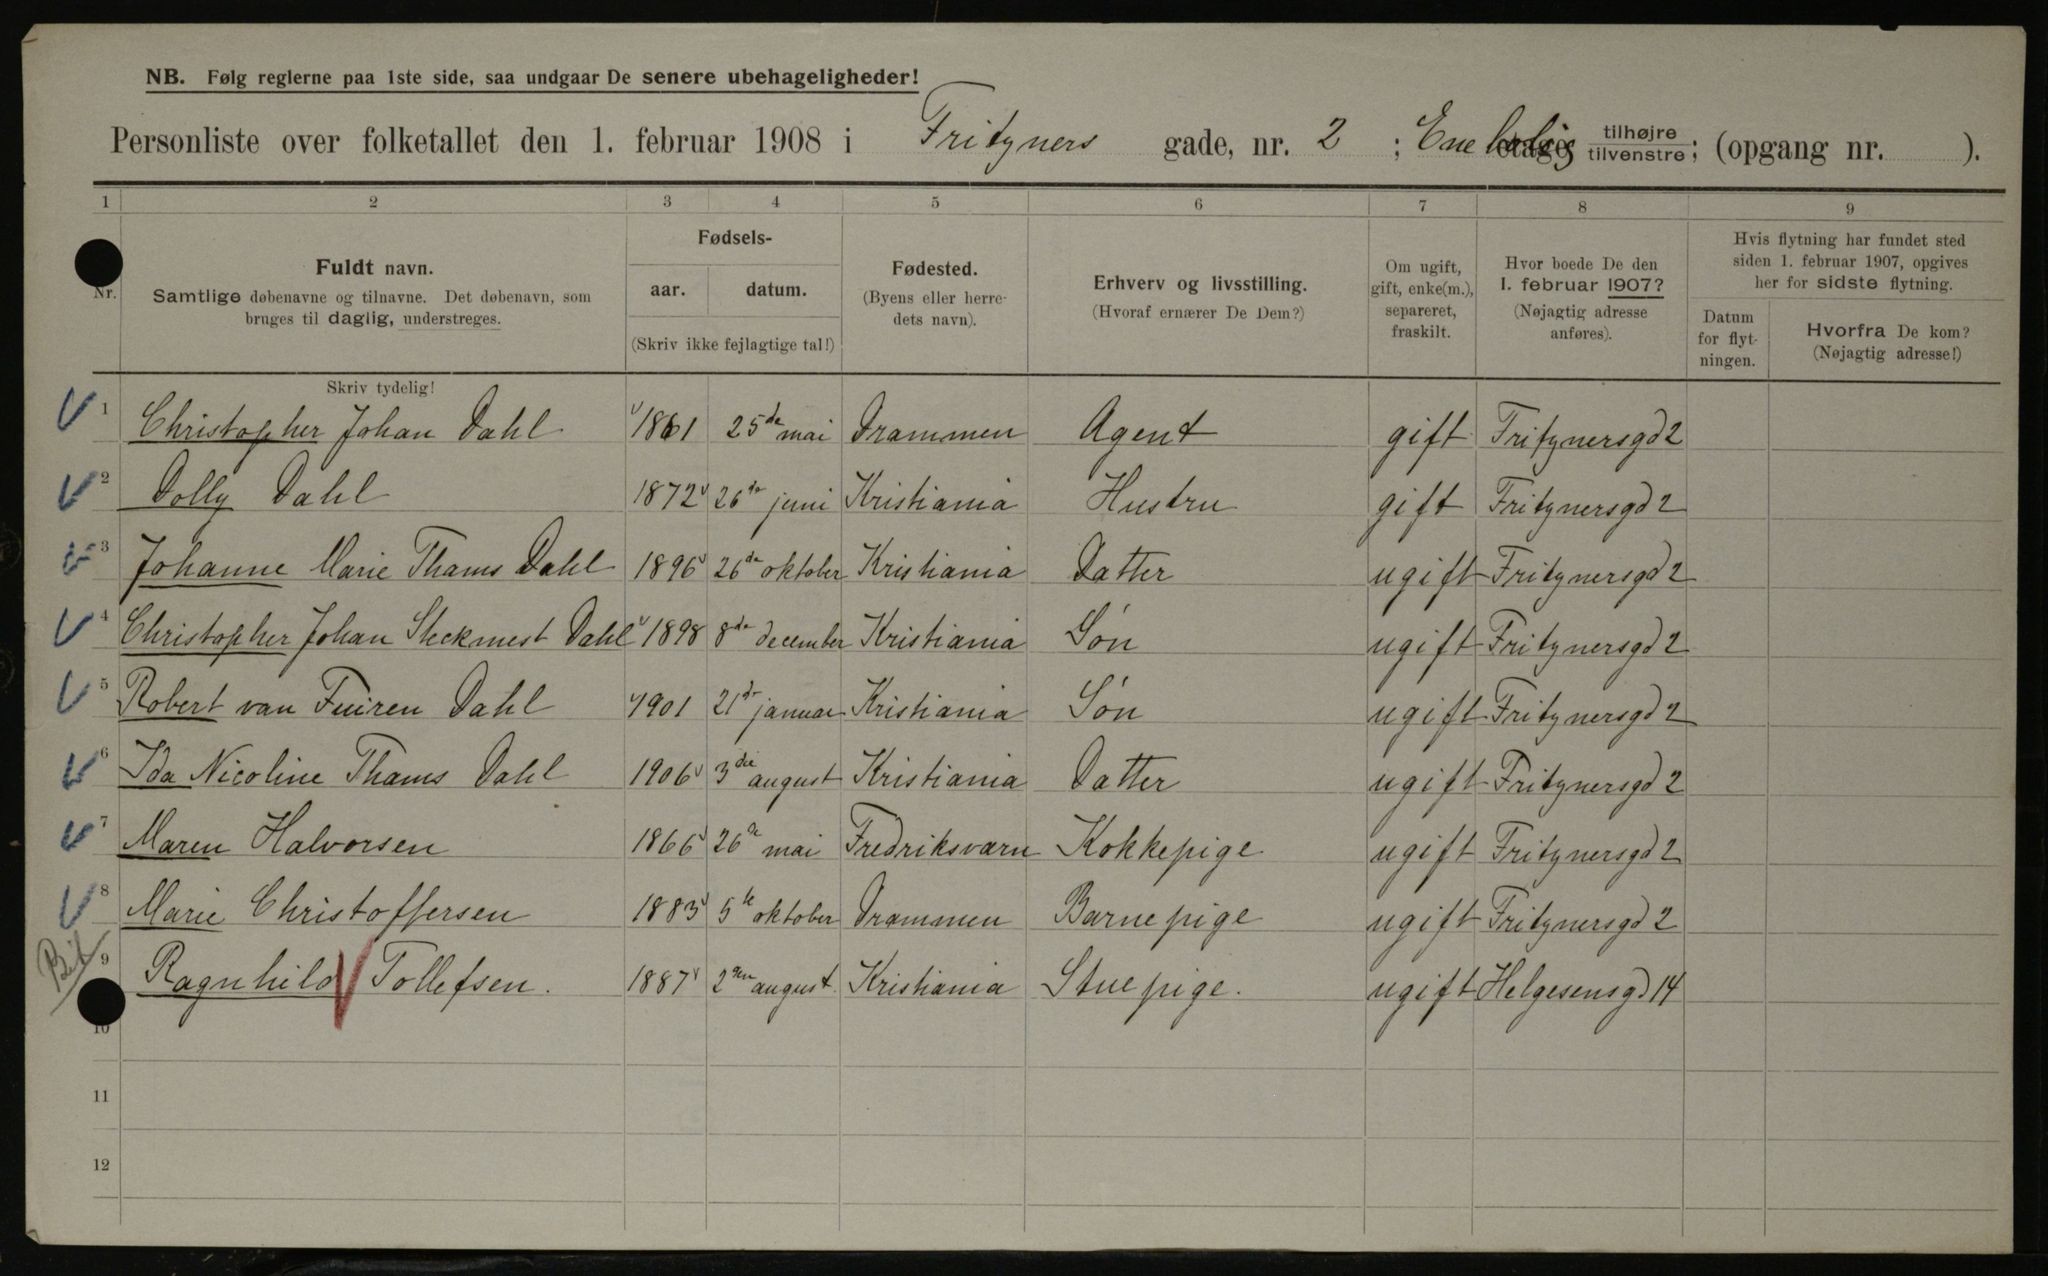 NB. Følg reglerne paa 1ste side, saa undgaar De senere ubehageligheder!
Personliste over folketallet den 1. februar 1908 i Fritzners gade, nr. 2 ; Enebolig etage, tilhøjre tilvenstre; (opgang nr. ).
1 2 3 4 5 6 7 8 9
Nr. Fuldt navn. Samtlige døbenavne og tilnavne. Det døbenavn, som bruges til daglig, understreges. Skriv tydelig!
Fødsels- aar. datum. (Skriv ikke fejlagtige tal!)
Fødested. (Byens eller herredets navn).
Erhverv og livsstilling. (Hvoraf ernærer De Dem?)
Om ugift, gift, enke(m.), separeret, fraskilt.
Hvor boede De den 1. februar 1907? (Nøjagtig adresse anføres).
Hvis flytning har fundet sted siden 1. februar 1907, opgives her for sidste flytning.
Datum for flytningen. Hvorfra De kom? (Nøjagtig adresse!)
1 Christopher Johan Dahl 1861 25de mai Drammen Agent gift Fritznersgd 2
2 Dolly Dahl 1872 26de juni Kristiania Hustru gift Fritznersgd 2
3 Johanne Marie Thams Dahl 1896 26de oktober Kristiania Datter ugift Fritznersgd 2
4 Christopher Johan Steckmest Dahl 1898 8de december Kristiania Søn ugift Fritznersgd 2
5 Robert van Fuiren Dahl 1901 21de januar Kristiania Søn ugift Fritznersgd 2
6 Ida Nicoline Thams Dahl 1906 3die august Kristiania Datter ugift Fritznersgd 2
7 Maren Halvorsen 1866 26de mai Fredriksværn Kokkepige ugift Fritznersgd 2
8 Marie Christoffersen 1883 5te oktober Drammen Barnepige ugift Fritznersgd 2
9 Ragnhild Tollefsen. 1887 2den august. Kristiania Stuepige. ugift Helgesensgd 14
10
11
12